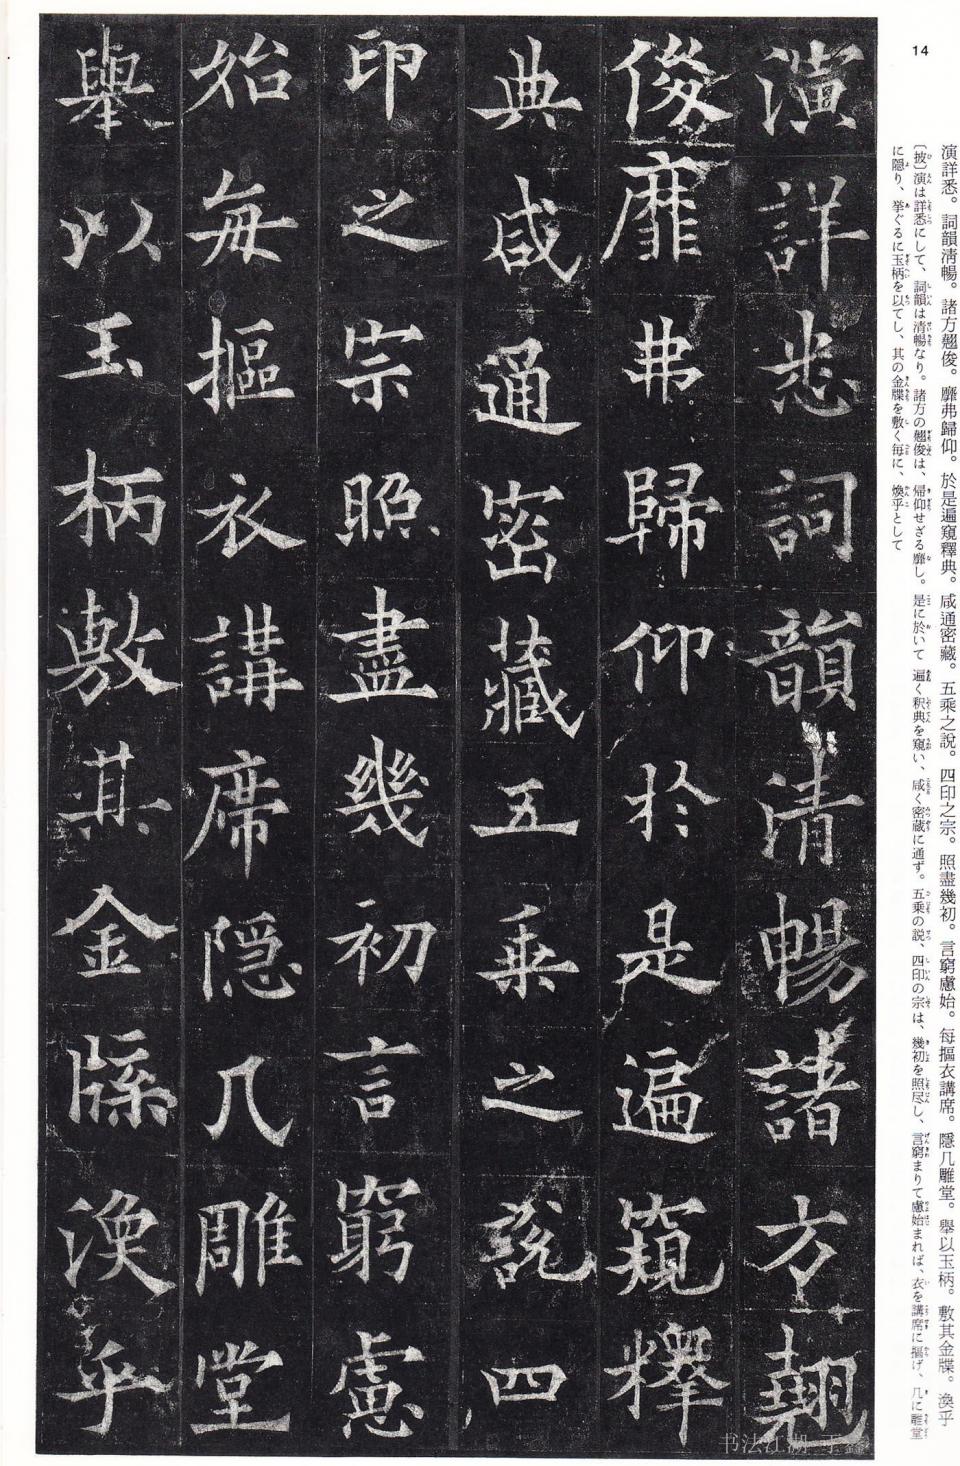 14
演詳悉。詞韻清暢。諸方翹俊。靡弗歸仰。於是遍窺釋典。咸通密藏。五乘之說。四印之宗。照盡幾初。言窮慮始。每摳衣講席。隱几雕堂。舉以玉柄。敷其金牒。渙乎
〔披〕演は詳悉にして、詞韻は清暢なり。諸方の翹俊は、帰仰せざる靡し。是に於いて 遍く釈典を窺い、咸く密蔵に通ず。五乗の説、四印の宗は、幾初を照尽し、言窮まりて慮始まれば、衣を講席に摳げ、几に雕堂
に隠り、挙ぐるに玉柄を以てし、其の金牒を敷く毎に、煥乎として
演詳悉詞韻清暢諸方翹
俊靡弗歸仰於是遍窺釋
典咸通密藏五乘之說四
印之宗照盡幾初言窮慮
始每摳衣講席隱几雕堂
舉以玉柄敷其金牒渙乎
书法江湖